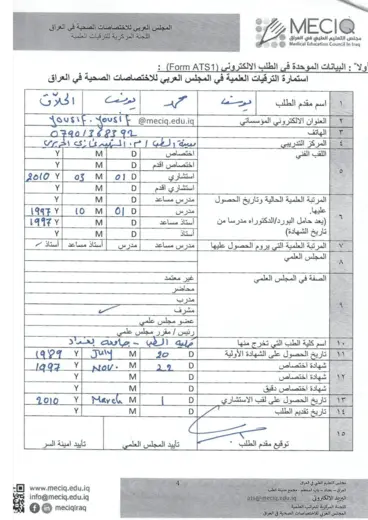 المجلس العربي للاختصاصات الصحية في العراق
اللجنة المركزية للترقيات العلمية
MECIQ
مجلس التعليم الطبي في العراق
Medical Education Council In Iraq
أولاً : البيانات الموحدة في الطلب الالكتروني (Form ATS1)
استمارة الترقيات العلمية في المجلس العربي للاختصاصات الصحية في العراق
١ اسم مقدم الطلب يوسف حمد يوسف الحلاق
٢ العنوان الالكتروني المؤسساتي yousif.yousif @meciq.edu.iq
٣ الهاتف 07901368392
٤ المركز التدريبي مدينة الطب
٥ اللقب الفني
اختصاص D M Y
اختصاص اقدم D M Y
استشاري D 01 M 03 Y 2010
استشاري اقدم D M Y
٦ المرتبة العلمية الحالية وتاريخ الحصول عليها.
(بعد حامل البورد/الدكتوراه مدرسا من تاريخ الشهادة)
مدرس مساعد D M Y
مدرس D 01 M 10 Y 1997
استاذ مساعد D M Y 1997
استاذ D M Y
٧ المرتبة العلمية التي يروم الحصول عليها مدرس مساعد مدرس أستاذ مساعد أستاذ
٨ المجلس العلمي
٩ الصفة في المجلس العلمي
غير معتمد
محاضر
مدرب
مشرف ✓
عضو مجلس علمي
رئيس / مقرر مجلس علمي
١٠ اسم كلية الطب التي تخرج منها كلية الطب - جامعة بغداد
١١ تاريخ الحصول على الشهادة الأولية D 20 M July Y 1989
١٢ شهادة اختصاص D 22 M Nov. Y 1997
شهادة اختصاص دقيق D M Y
١٣ تاريخ الحصول على لقب الاستشاري D 1 M March Y 2010
١٤ تاريخ تقديم الطلب D M Y
١٥
توقيع مقدم الطلب تأييد المجلس العلمي تأييد امينة السر
4
www.meciq.edu.iq
info@meciq.edu.iq
meciqiraq
مجلس التعليم الطبي في العراق
البريد الالكتروني
اللجنة المركزية للترقيات العلمية
المجلس العربي للاختصاصات الصحية في العراق